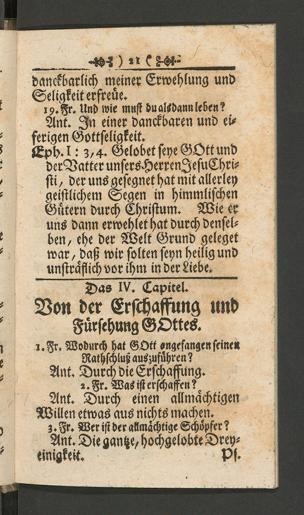 ) 21 (
danckbarlich meiner Erwehlung und
Seligkeit erfreüe.
19. Fr. Und wie must du alsdann leben?
Ant. In einer danckbaren und ei-
ferigen Gottseligkeit.
Eph. I : 3, 4. Gelobet seye GOtt und
der Vatter unsers Herren Jesu Chri-
sti, der uns gesegnet hat mit allerley
geistlichem Segen in himmlischen
Gütern durch Christum. Wie er
uns dann erwehlet hat durch densel-
ben, ehe der Welt Grund geleget
war, daß wir solten seyn heilig und
unsträflich vor ihm in der Liebe.
Das IV. Capitel.
Von der Erschaffung und
Fürsehung GOttes.
1. Fr. Wodurch hat GOtt angefangen seinen
Rathschluß auszuführen?
Ant. Durch die Erschaffung.
2. Fr. Was ist erschaffen?
Ant. Durch einen allmächtigen
Willen etwas aus nichts machen.
3. Fr. Wer ist der allmächtige Schöpfer?
Ant. Die gantze, hochgelobte Drey-
einigkeit. Ps.